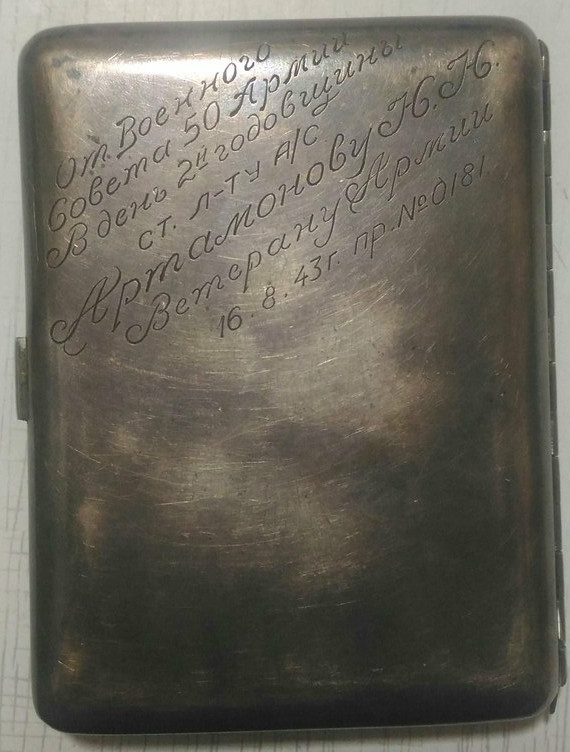 От Военного
Совета 50 Армии
В день 2й годовщины
ст. л-ту А/С
Артамонову Н.Н.
Ветерану Армии
16.8.43г. пр.№0181